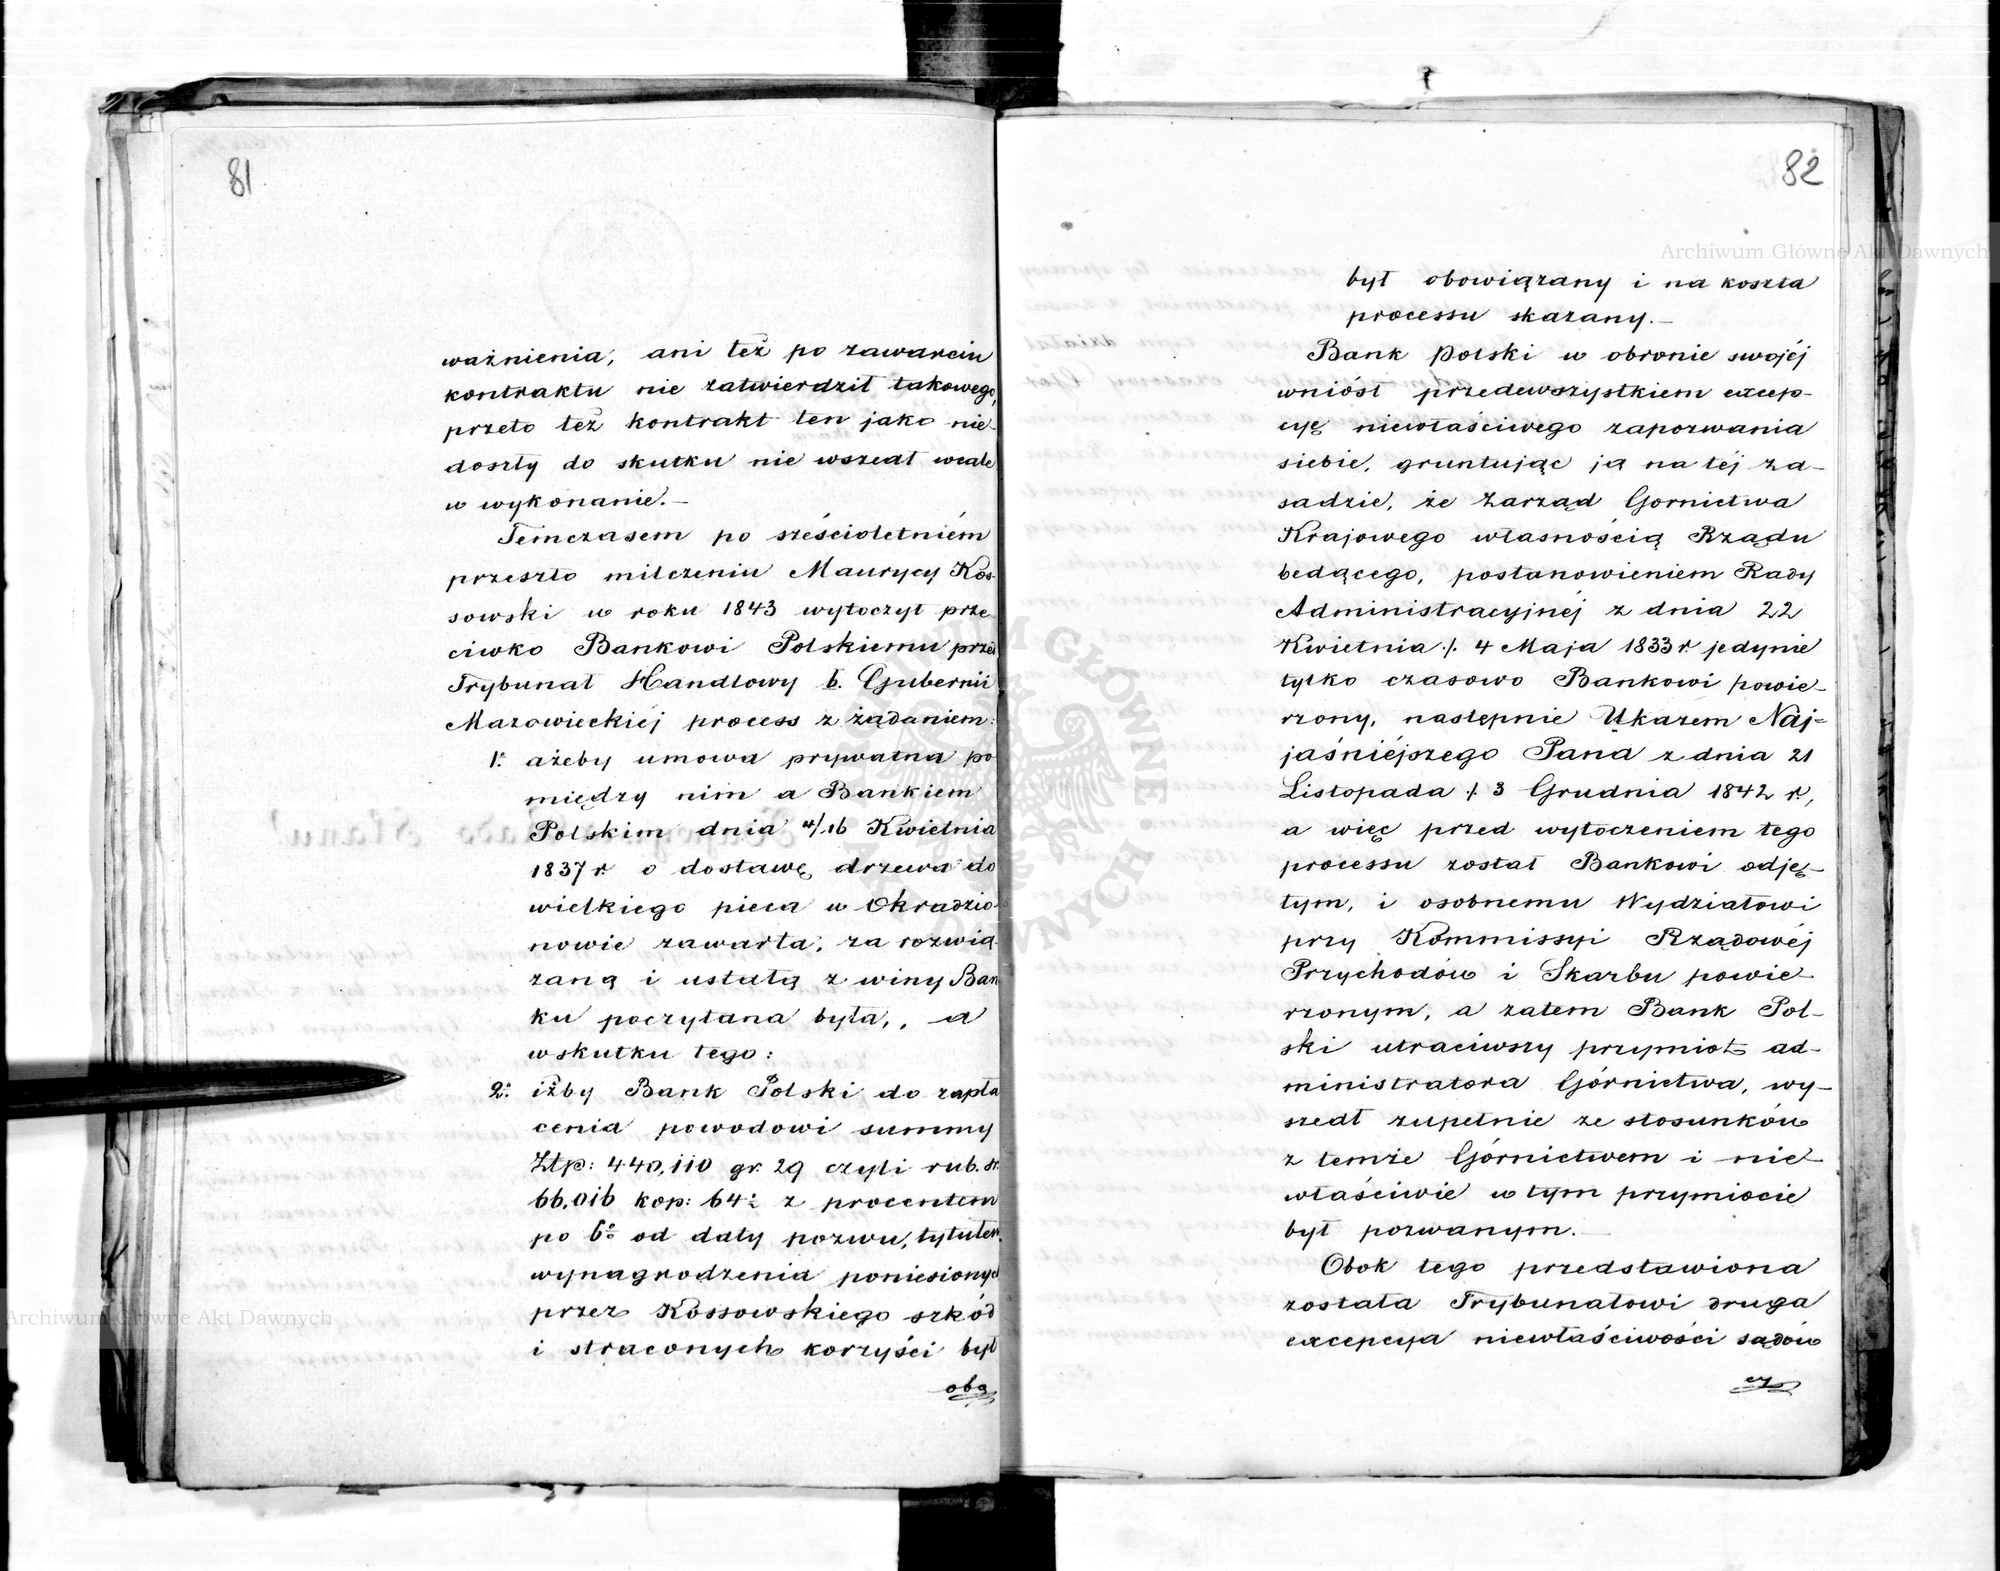 81
ważnienia, ani też po zawarciu
kontraktu nie zatwierdził takowego,
przeto też kontrakt ten jako nie-
doszły do skutku nie wszedł wcale
w wykonanie.—
Temczasem po sześcioletniém
przeszło milczeniu Maurycy Kos-
sowski w roku 1843 wytoczył prze-
ciwko Bankowi Polskiemu przed
Trybunał Handlowy b. Gubernii
Mazowieckiéj process z żądaniem:
1.° ażeby umowa prywatna po
między nim a Bankiem
Polskim dnia 4/16 Kwietnia
1837 r. o dostawę drzewa do
wielkiego pieca w Okradzio-
nowie zawarta, za rozwią-
zaną i ustałą z winy Ban
ku poczytana była, a
wskutku tego:
2.° iżby Bank Polski do zapła
cenia powodowi summy
Złp: 440,110 gr. 29 czyli rub. sr.
66,016 kop: 64½ z procentem
po 6% od daty pozwu, tytułem
wynagrodzenia poniesionych
przez Kossowskiego szkód
i straconych korzyści był
obo
82
był obowiązany i na koszta
processu skazany.—
Bank Polski w obronie swojéj
wniósł przedewszystkiem excep-
cyę niewłaściwego zapozwania
siebie, gruntując ją na téj za-
sadzie, że Zarząd Gornictwa
Krajowego własnością Rządu
bedącego, postanowieniem Rady
Administracyjnéj z dnia 22
Kwietnia /. 4 Maja 1833 r. jedynie
tylko czasowo Bankowi powie-
rzony, następnie Ukazem Naj-
jaśniéjszego Pana z dnia 21
Listopada /. 3 Grudnia 1842 r.,
a więc przed wytoczeniem tego
processu został Bankowi odję-
tym, i osobnemu Wydziałowi
przy Kommissyi Rządowéj
Przychodów i Skarbu powie-
rzonym, a zatem Bank Pol-
ski utraciwszy przymiot ad-
ministratora Górnictwa, wy-
szedł zupełnie ze stosunków
z temże Górnictwem i nie-
właściwie w tym przymiocie
był pozwanym.—
Obok tego przedstawiona
została Trybunałowi druga
excepcya niewłaściwości sądów
cy
Archiwum Główne Akt Dawnych
Archiwum Główne Akt Dawnych